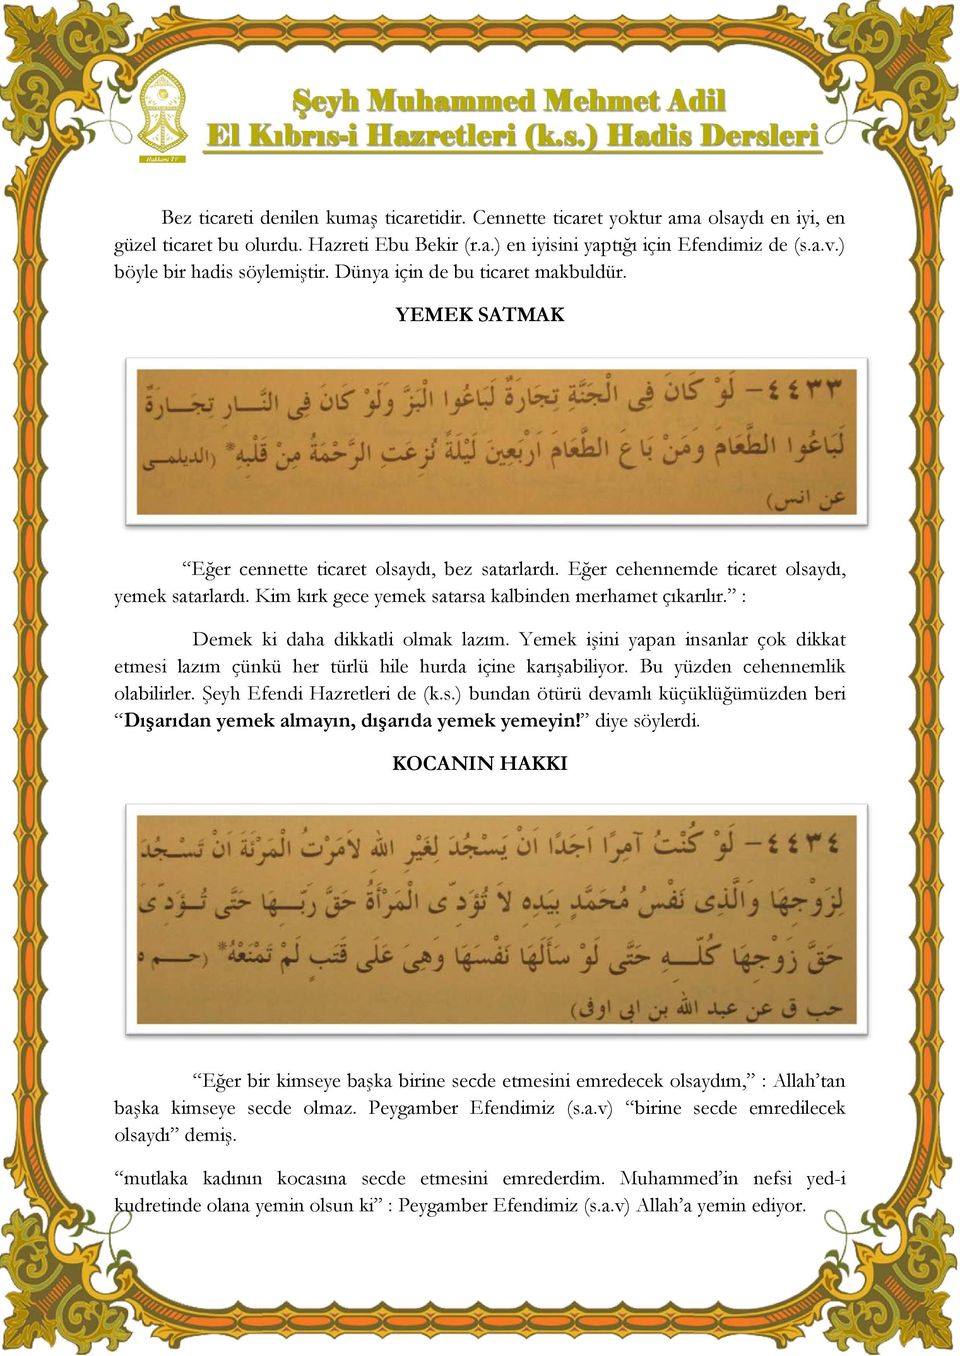 Şeyh Muhammed Mehmet Adil
El Kıbrıs-i Hazretleri (k.s.) Hadis Dersleri
Hakkani TV
Bez ticareti denilen kumaş ticaretidir. Cennette ticaret yoktur ama olsaydı en iyi, en
güzel ticaret bu olurdu. Hazreti Ebu Bekir (r.a.) en iyisini yaptığı için Efendimiz de (s.a.v.)
böyle bir hadis söylemiştir. Dünya için de bu ticaret makbuldür.
YEMEK SATMAK
٤٤٣٣- لَوْ كَانَ فِى الْجَنَّةِ تِجَارَةٌ لَبَاعُوا الْبَزَّ وَلَوْ كَانَ فِى النَّـــارِ تِجَـــارَةٌ
لَبَاعُوا الطَّعَامَ وَمَنْ بَاعَ الطَّعَامَ اَرْبَعِينَ لَيْلَةً نُزِعَتِ الرَّحْمَةُ مِنْ قَلْبِهِ* (الديلمــى
عن انس)
“Eğer cennette ticaret olsaydı, bez satarlardı. Eğer cehennemde ticaret olsaydı,
yemek satarlardı. Kim kırk gece yemek satarsa kalbinden merhamet çıkarılır.” :
Demek ki daha dikkatli olmak lazım. Yemek işini yapan insanlar çok dikkat
etmesi lazım çünkü her türlü hile hurda içine karışabiliyor. Bu yüzden cehennemlik
olabilirler. Şeyh Efendi Hazretleri de (k.s.) bundan ötürü devamlı küçüklüğümüzden beri
“Dışarıdan yemek almayın, dışarıda yemek yemeyin!” diye söylerdi.
KOCANIN HAKKI
٤٤٣٤- لَوْ كُنْتُ آمِرًا اَحَدًا اَنْ يَسْجُدَ لِغَيْرِ اللهِ لَاَمَرْتُ الْمَرْئَةَ اَنْ تَسْـجُدَ
لِزَوْجِهَا وَالَّذِى نَفْسُ مُحَمَّدٍ بِيَدِهِ لاَ تُؤَدِّى الْمَرْأَةُ حَقَّ رَبِّــهَا حَتَّى تُــؤَدِّىَ
حَقَّ زَوْجِهَا كُلِّـــهِ حَتَّى لَوْ سَأَلَهَا نَفْسَهَا وَهِىَ عَلَى قَتَبٍ لَمْ تَمْنَعْهُ* (حــم ه
حب ق عن عبد الله بن ابى اوفى)
“Eğer bir kimseye başka birine secde etmesini emredecek olsaydım,” : Allah’tan
başka kimseye secde olmaz. Peygamber Efendimiz (s.a.v) “birine secde emredilecek
olsaydı” demiş.
“mutlaka kadının kocasına secde etmesini emrederdim. Muhammed’in nefsi yed-i
kudretinde olana yemin olsun ki” : Peygamber Efendimiz (s.a.v) Allah’a yemin ediyor.